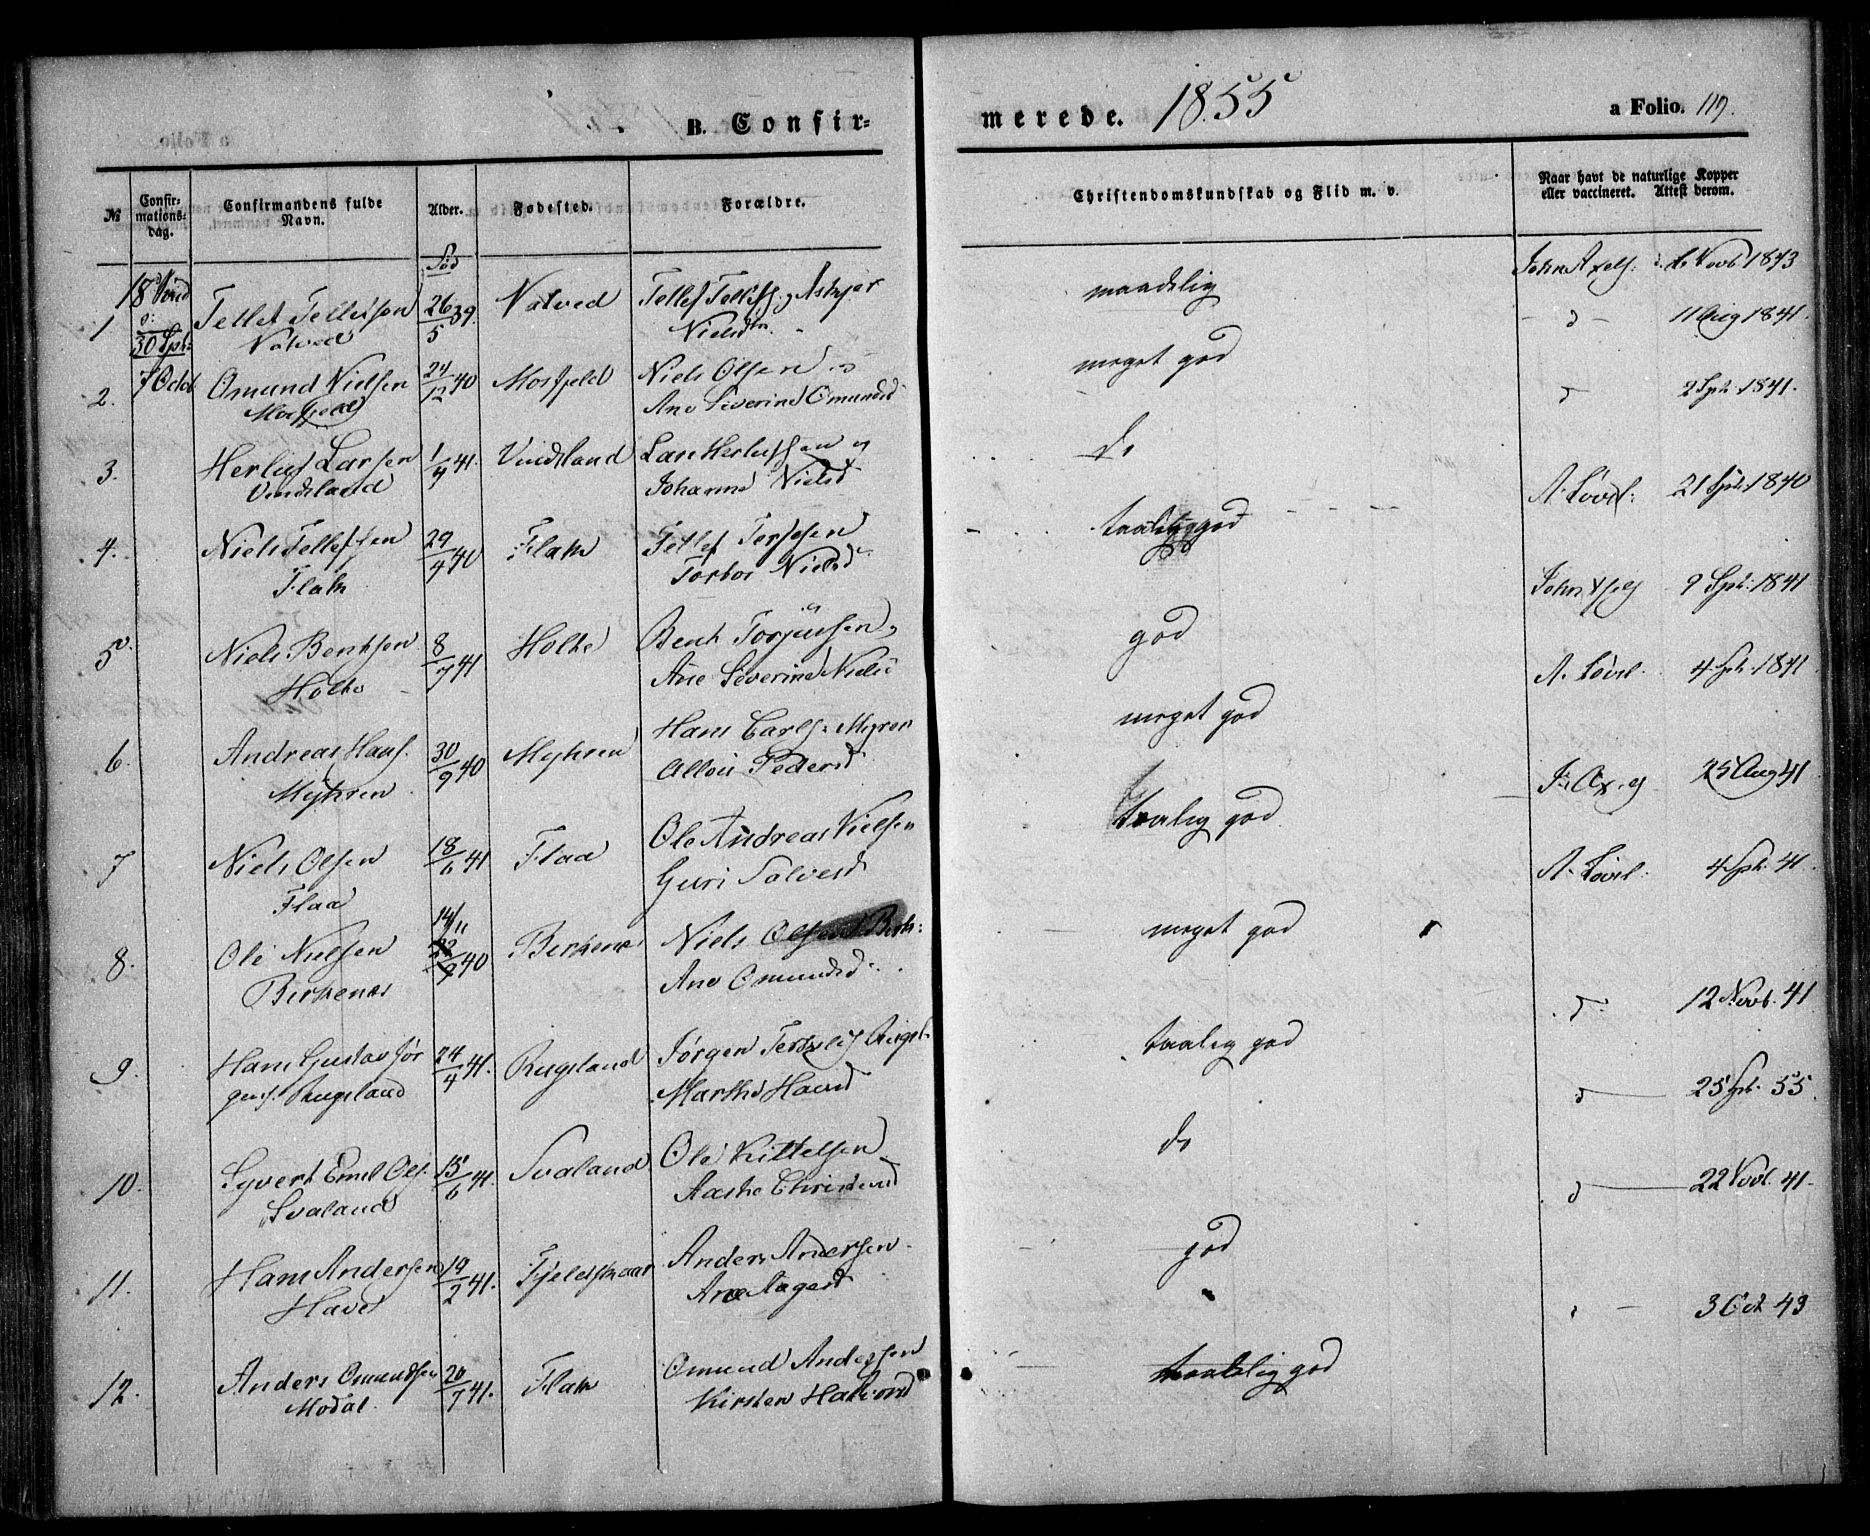 B. Confir-
merede. 1855
a Folio. 119.
№
Confir-
mations-
dag.
Confirmandens fulde
Navn.
Alder.
Fødested.
Forældre.
Christendomskundskab og Flid m. v.
Naar havt de naturlige Kopper
eller vaccineret. Attest derom.
Fød
1
30 Spt:
7 Octb
Tellef Tellefsen
Natved
26/5 39.
Natved
Tellef Tellefs. og Asbjør
Nielsdtr.
maadelig
John Axels: Novb 1843
2.
Omund Nielsen
Mosfjeld
24/12 40
Mosfjeld
Niels Olsen
Ane Severine Omundsd
meget god
11 Aug 1841.
3.
Herluf Larsen
Vindsland
1/4 41.
Vindsland
Lars Herlufsen og
Johanne Nielsd
do
2 Spt. 1841.
4.
Niels Tellefsen
Flak
29/4 40
Flak
Tellef Terjesen
Torbor Nielsd.
taalig god
A. Løvel: 21 Spt: 1840
5.
Niels Bentsen
Holte
8/7 41
Holte
Bent Torjusen
Ane Severine Nielsd
god
John Axels 9 Spt. 1841
6.
Andreas Hans.
Myhren
30/9 40
Myhren
Hans Carls. Myren
Pedersd
meget god
A. Løvel. 4 Spt. 1841
7
Niels Olsen
Flaa
18/6 41
Flaa
Ole Andreas Nielsen
Guri Salvesd
taalig god
J. Ax. 25 Aug 41
8.
Ole Nielsen
Birkenes
14/11
22/9 40
Birkenes
Niels Olsen Birk:
Ane Omundsd.
meget god
A. Løvel. 4 Spt. 41
9.
Hans Gustav Jør
gens. Rugsland
24/4 41.
Rugsland
Jørgen
Marthe Hansd
taalig god
12 Novb. 41
10.
Syvert Emil Ols.
Svaland
15/6 41.
Svaland
Ole Kittelsen
Aaste Christensd
do
25 Spt. 55
11.
Hans Andersen
Have
19/2 41.
Fjeldskaar
Anders Andersen
Ane Aagesd
god
22 Novb. 41.
12.
Anders Omundsen
Modal.
20/7 41.
Flak
Omund Andersen
Kirsten Halvorsd
taalelig god
3 Oct 43